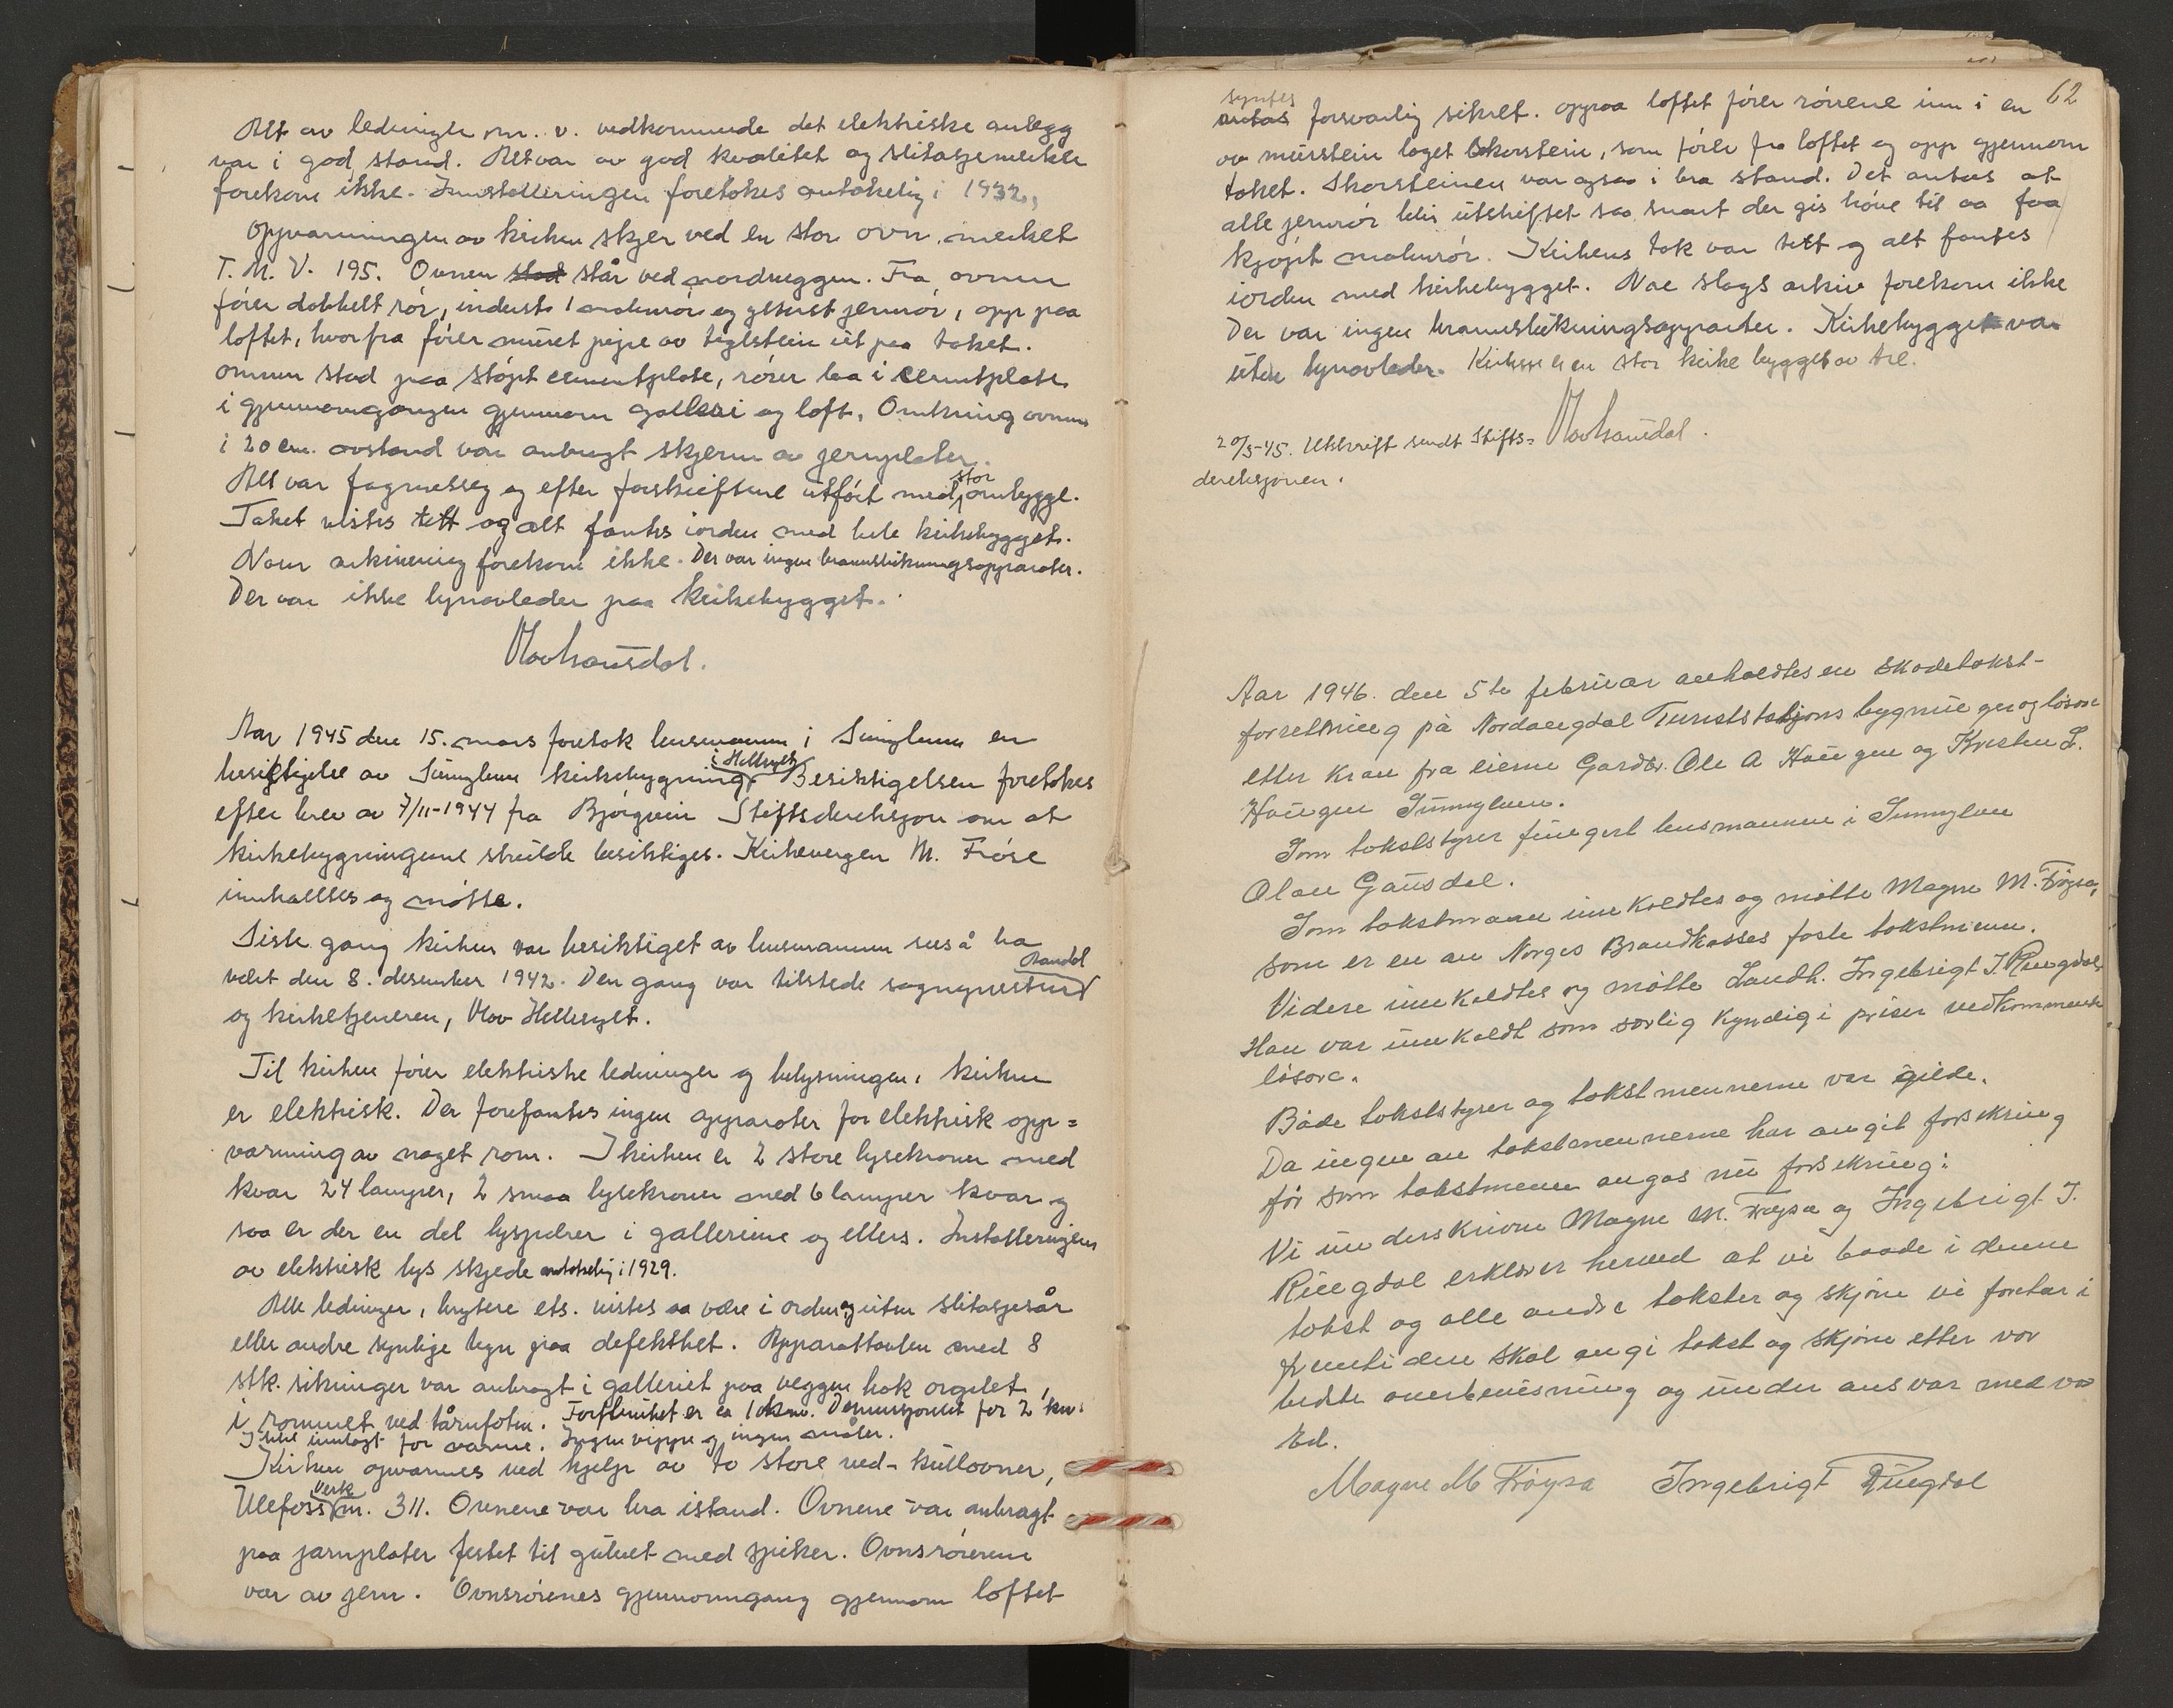 Alt av ledninger m. v. vedkommende det elektriske anlegg
var i god stand. Alt var av god kvalitet og slitasjemerker
forekom ikke. Innstalleringen foretokes antakelig i 1932.
Opvarmningen av kirken skjer ved en stor ovn merket
T. M. V. 195. Ovnen stod står ved nordveggen. Fra ovnen
fører dobbelt rør, inderst malmrør og ytterst jernrør, opp paa
loftet, hvorfra fører muret pipe av teglstein ut paa taket.
ovnen stod paa støpt cementplate, rører laa i cementplate
i gjennomgangen gjennom galleri og loft. Omkring ovnen
i 20 cm. avstand var anbragt skjerm av jernplater.
Alt var fagmessig og efter forskriftene utført med stor omhygge.
Taket vistes tett og alt fantes iorden med hele kirkebygget.
Noen arkivering forekom ikke. Der var ingen brannslukningsapparater.
Der var ikke lynavleder paa kirkebygget.
Olav Gausdal.
Aar 1945 den 15. mars foretok lensmannen i Sunnylven en
besigtigelse av Sunnylven kirkebygning i Hellesylt. Besiktigelsen foretokes
efter brev av 7/11-1944 fra Bjørgvin Stiftsdireksjon om at
kirkebygningene skulde besiktiges. Kirkevergen M. Frøse
innkalltes og møtte.
Siste gang kirken var besiktiget av lensmannen sees å ha
vært den 8. desember 1942. Den gang var tilstede sogneprest Randal
og kirketjeneren, Olav Hellesylt.
Til kirken fører elektriske ledninger og belysningen i kirken
er elektrisk. Der forefantes ingen apparater for elektrisk opp=
varming av noget rom. I kirken er 2 store lysekroner med
kvar 24 lamper, 2 smaa lysekroner med 6 lamper kvar og
saa er der en del lyspærer i galleriene og ellers. Installeringen
av elektrisk lys skjede antakelig i 1929.
Alle ledninger, brytere ets. vistes aa være i orden og uten slitasjesår
eller andre synlige tegn paa defekthet. Apparattavlen med 8
stk. sikringer var anbragt i galleriet paa veggen hok orgelet,
i rommet ved tårnfoten. Forbruket er ca 1 kw. Demensjonert for 2 kw.
Ikke innlagt for varme. Ingen vippe og ingen måler.
Kirken opvarmes ved hjelp av to store ved- kullovner,
Ulefoss Verk nr. 311. Ovnene var bra istand. Ovnene var anbragt
paa jarnplater festet til gulvet med spiker. Ovnsrørene
var av jern. Ovnsrørenes gjennomgang gjennom loftet
62
syntes
antas forsvarlig sikret. oppaa loftet fører rørene inn i en
av murstein laget skorstein, som fører fra loftet og opp gjennom
taket. Skorsteinen var ogsaa i bra stand. Det antas at
alle jernrør blir utskiftet saa snart der gis høve til aa faa
kjøpt malmrør. Kirkens tak var tett og alt fantes
iorden med kirkebygget. Noe slags arkiv forekom ikke
Der var ingen brannslukningsapparater. Kirkebygget var
uten lynavleder. Kirken er en stor kirke bygget av tre.
Olav Gausdal.
20/3-45. Utskrift sendt Stifts=
direksjonen.
Aar 1946. den 5te februar avholdtes en skadetakst-
forretning på Nordangdal Turiststasjons bygninger og løsøre
etter krav fra eierne Gardbr. Ole A Haugen og Kristen L.
Haugen Sunnylven.
Som takststyrer fungert lensmannen i Sunnylven
Olav Gausdal.
Som takstmann innkaldtes og møtte Magne M. Frøysa,
som er en av Norges Brandkasses faste takstmenn.
Videre innkaldtes og møtte Landh. Ingebrigt I. Ringdal
Han var innkaldt som særlig kyndig i priser vedkommende
løsøre.
Både takststyrer og takstmennerne var gilde.
Da ingen av takstmennerne har avgit forsikring
før som takstmenn avgas nu forsikring:
Vi underskrivne Magne M. Frøysa og Ingebrigt I.
Ringdal erklærer herved at vi baade i denne
takst og alle andre takster og skjønn vi foretar i
fremtiden skal avgi takst og skjønn etter vor
bedste overbevisning og under ansvar med vor
Ed.
Magne M Frøysa Ingebrigt Ringdal